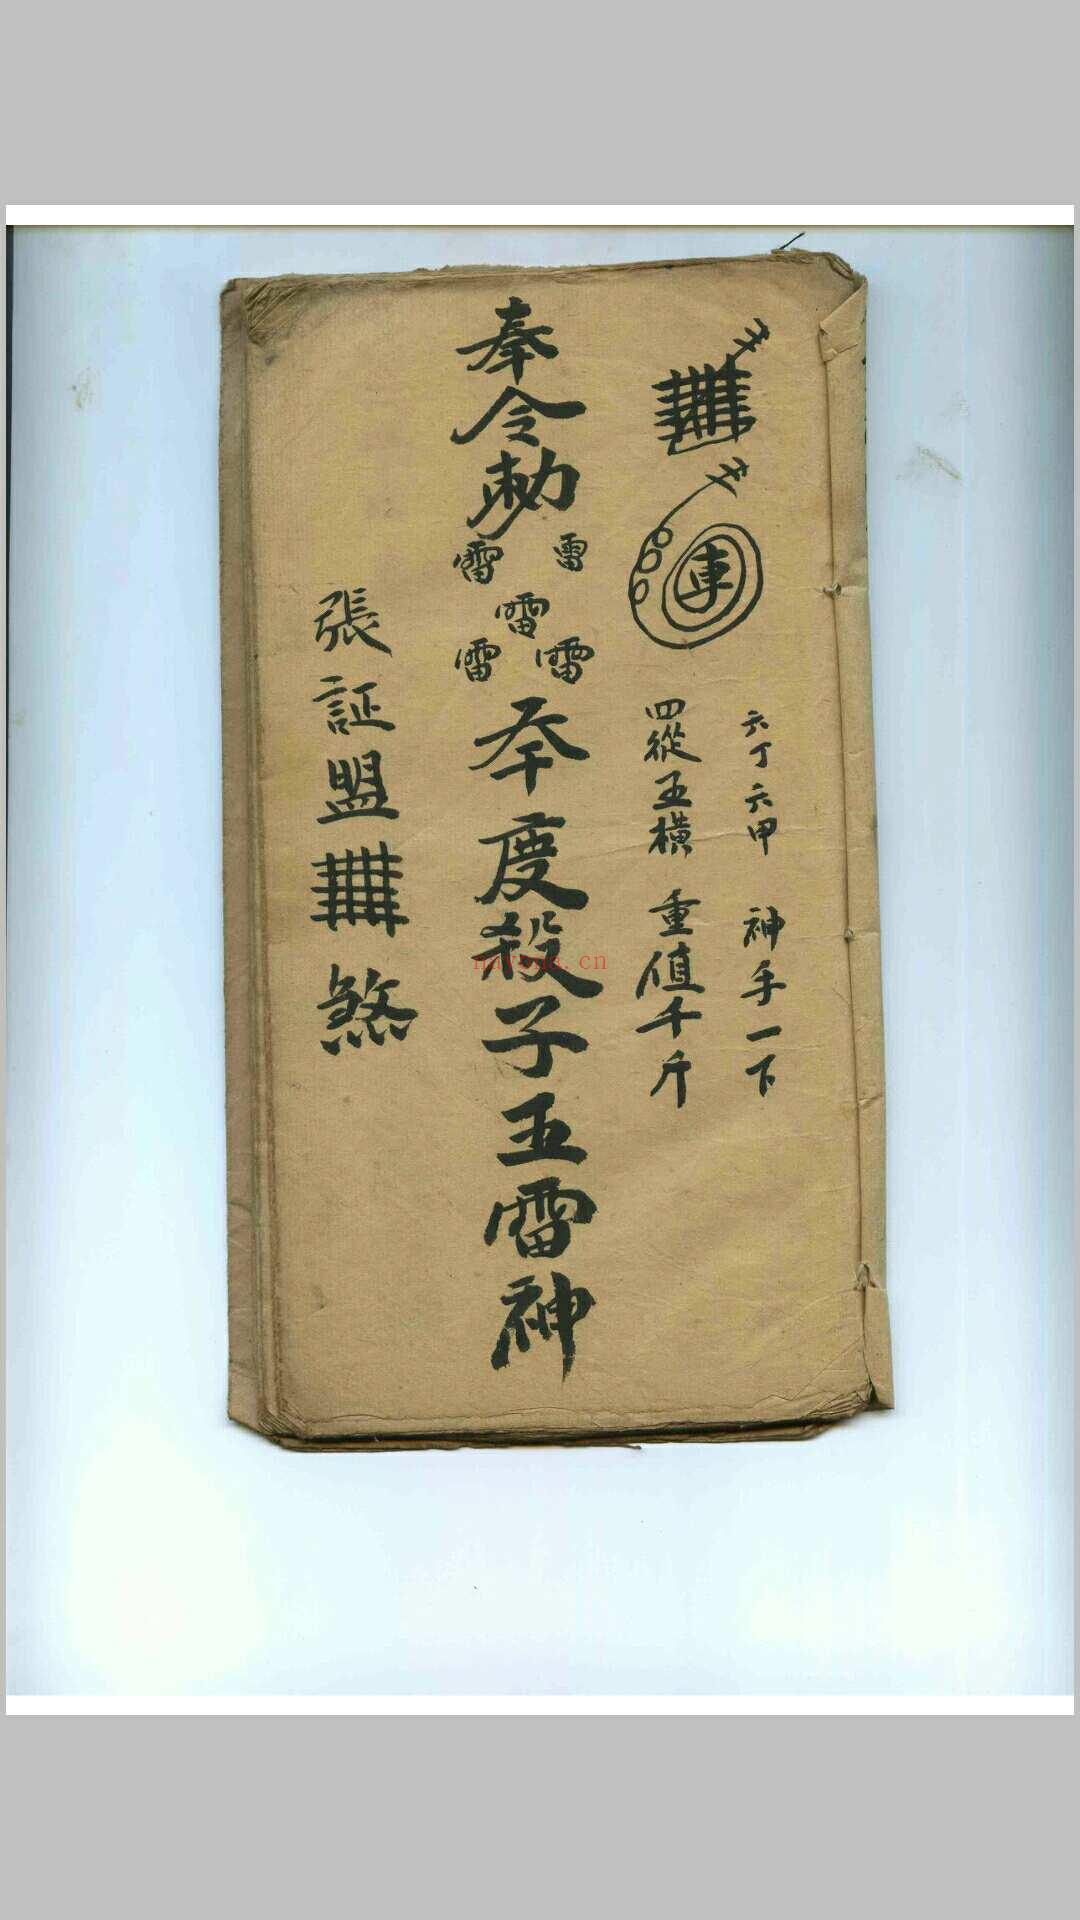 六丁六甲 神手一下
車
四從五橫 重值千斤
奉令勅
雷 雷
雷
雷 雷
本度殺子五雷神
張証盟 煞
nayona.cn